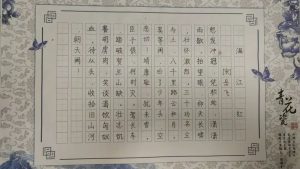 满江红
[宋]岳飞
怒发冲冠,凭栏处、潇潇
雨歇。抬望眼,仰天长啸,
壮怀激烈。三十功名尘
与土,八千里路云和月。
莫等闲、白了少年头,空
悲切!靖康耻,犹未雪。
臣子恨,何时灭!驾长车,
踏破贺兰山缺。壮志饥
餐胡虏肉,笑谈渴饮匈奴
血。待从头、收拾旧山河,
朝天阙!
青花瓷